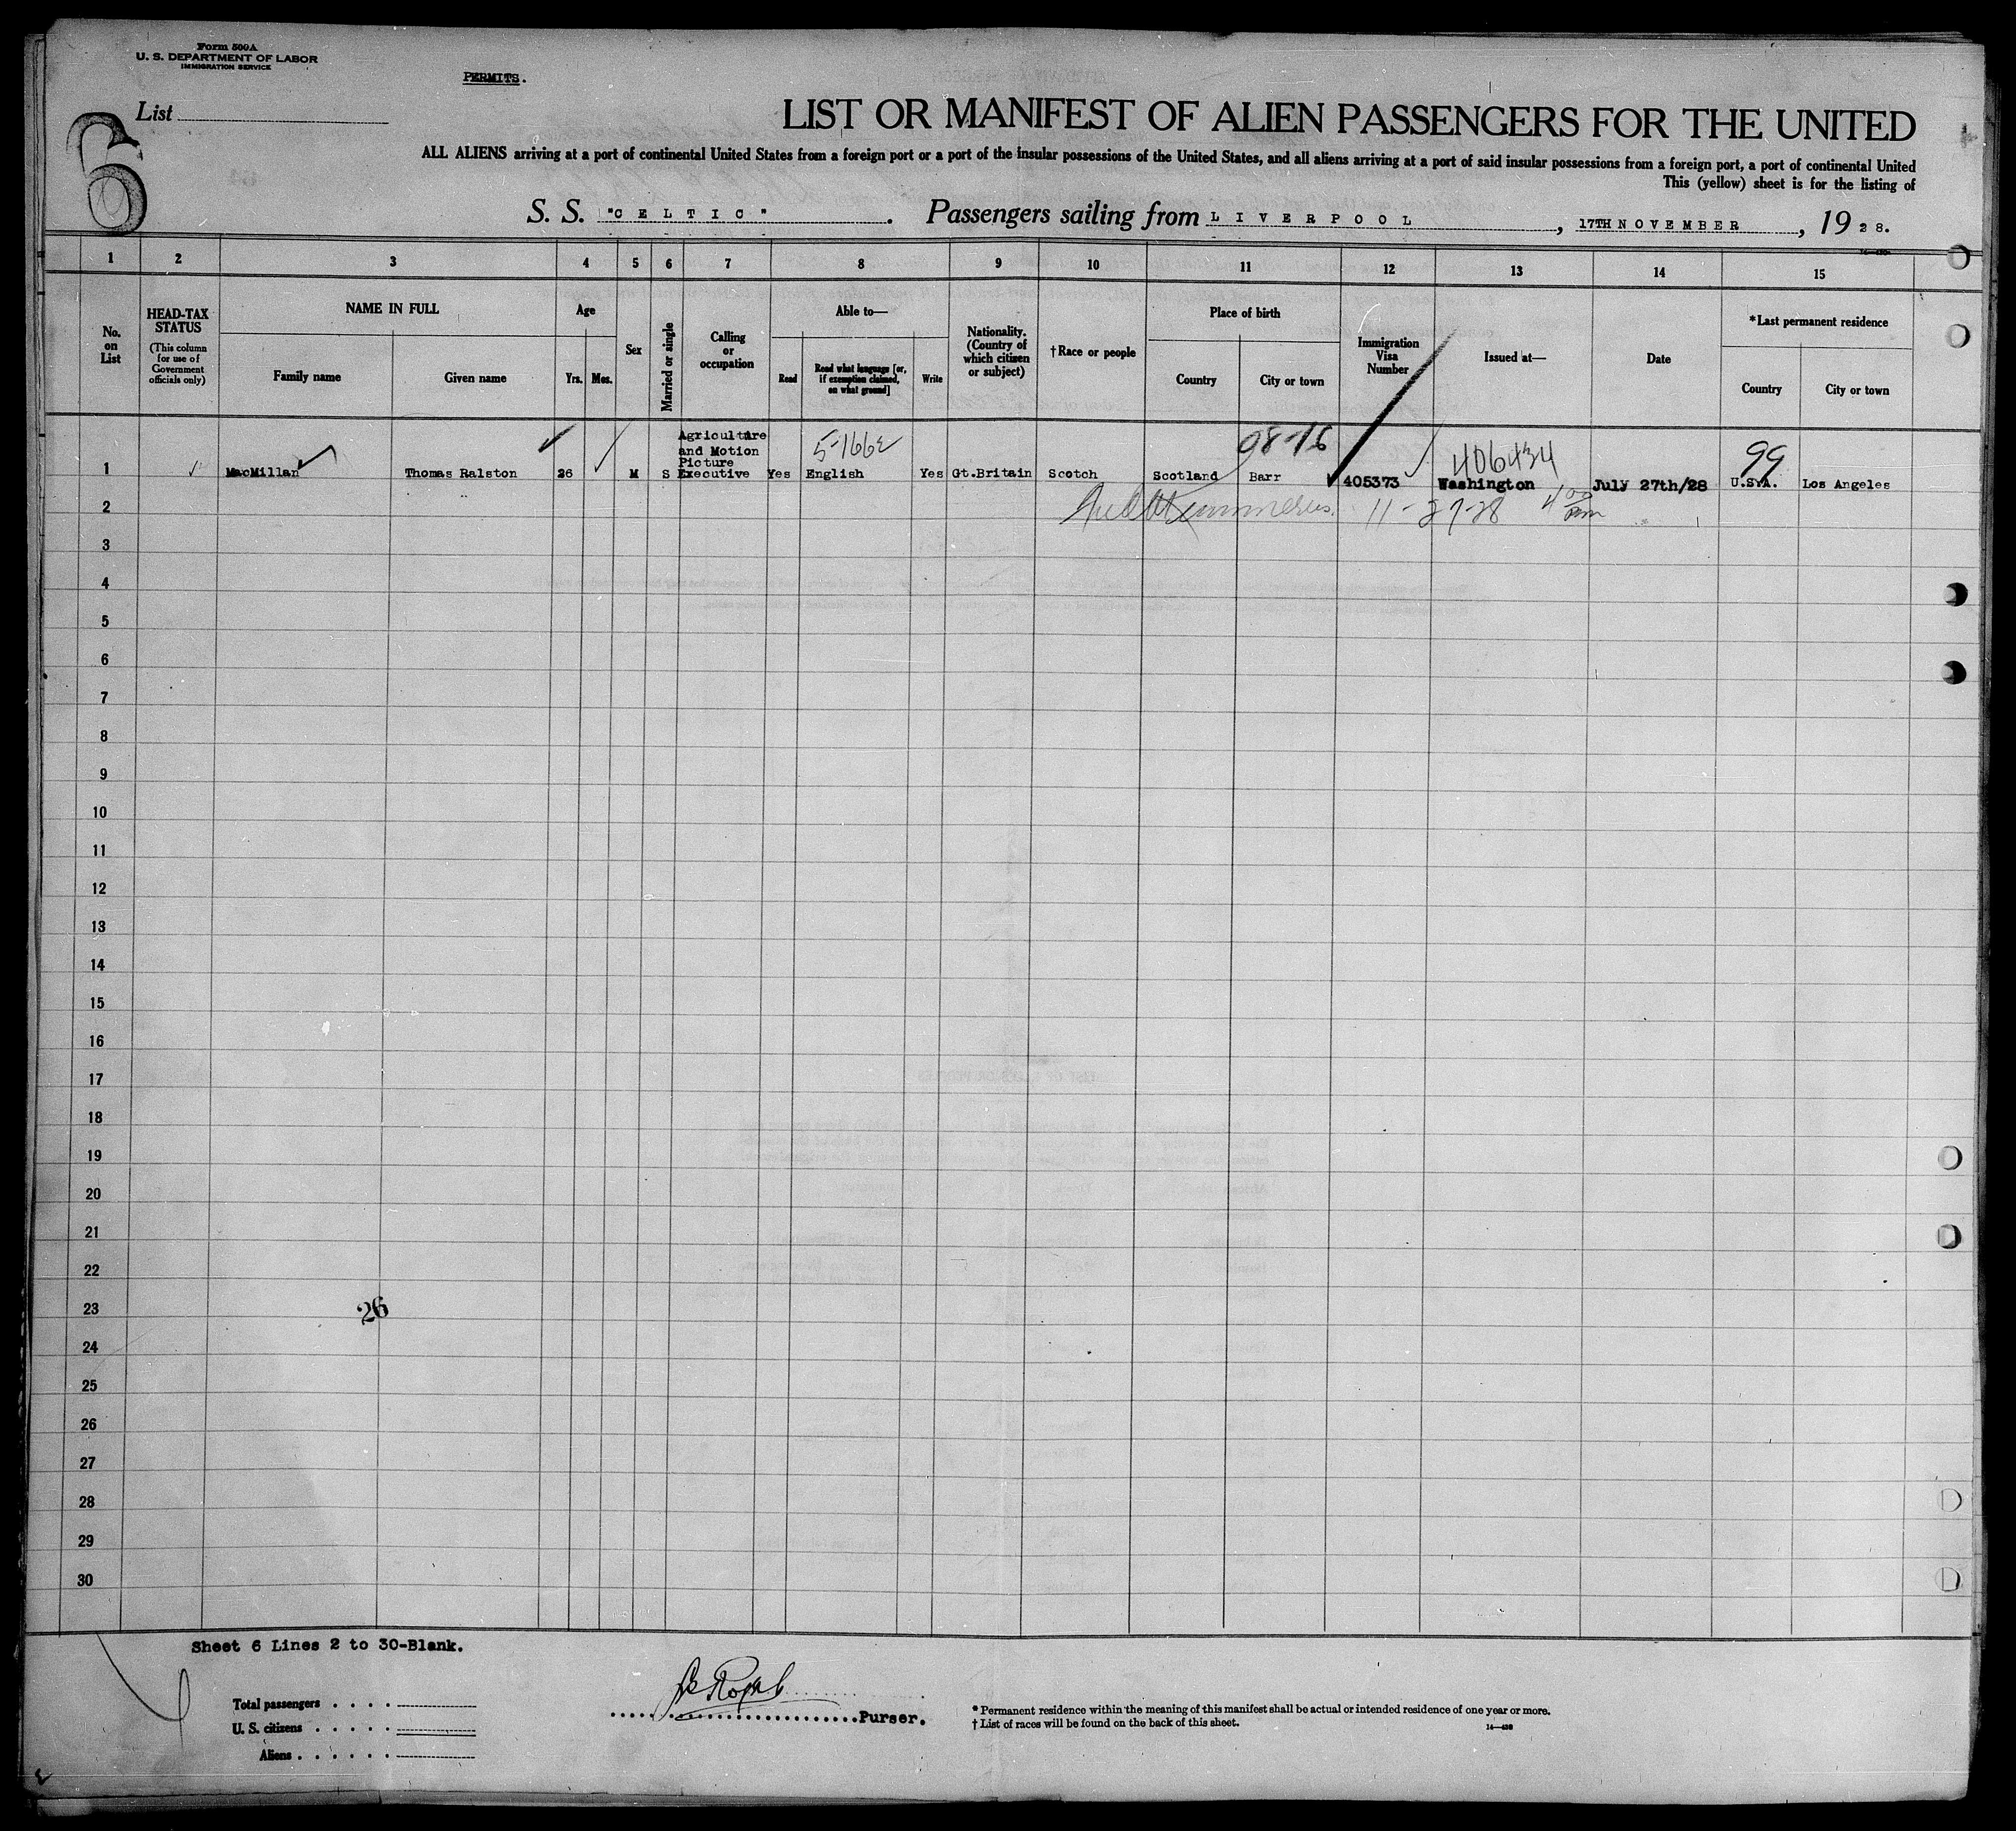 Form 500A
U. S. DEPARTMENT OF LABOR
IMMIGRATION SERVICE
PERMITS.
List
6
LIST OR MANIFEST OF ALIEN PASSENGERS FOR THE UNITED
ALL ALIENS arriving at a port of continental United States from a foreign port or a port of the insular possessions of the United States, and all aliens arriving at a port of said insular possessions from a foreign port, a port of continental United
This (yellow) sheet is for the listing of
S. S. "CELTIC". Passengers sailing from LIVERPOOL, 17TH NOVEMBER, 1928.
1 2 3 4 5 6 7 8 9 10 11 12 13 14 15
No. on List
HEAD-TAX STATUS
(This column for use of Government officials only)
NAME IN FULL
Family name
Given name
Age
Yrs. Mos.
Sex
Married or single
Calling or occupation
Able to—
Read
Read what language [or, if exemption claimed, on what ground]
Write
Nationality. (Country of which citizen or subject)
†Race or people
Place of birth
Country
City or town
Immigration Visa Number
Issued at—
Date
*Last permanent residence
Country
City or town
5-1662 98-16 406434 99
1 MacMillan Thomas Ralston 26 M S Agriculture and Motion Picture Executive Yes English Yes Gt.Britain Scotch Scotland Barr 405373 Washington July 27th/28 U.S.A. Los Angeles
2 11-27-28 4 00 pm
3
4
5
6
7
8
9
10
11
12
13
14
15
16
17
18
19
20
21
22
23 26
24
25
26
27
28
29
30
Sheet 6 Lines 2 to 30-Blank.
Total passengers
U. S. citizens
Aliens
Purser.
* Permanent residence within the meaning of this manifest shall be actual or intended residence of one year or more.
† List of races will be found on the back of this sheet.